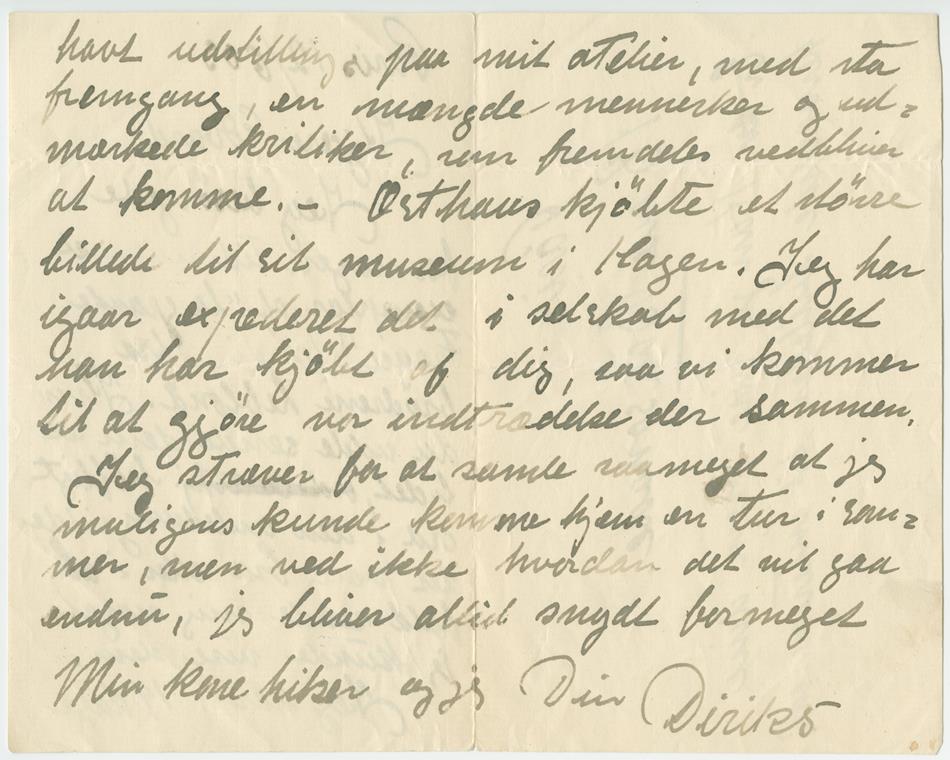 havt udstilling paa mit atelier, med sto
fremgang, en mængde mennesker og ud=
mærkede kritiker, som fremdeles vedbliver
at komme. – Östhaus kjöbte et större
billede til sit museum i Hagen. Jeg har
igaar expederet det i selskab med det
han har kjöbt af dig, saa vi kommer
til at gjöre vor indtrædelse der sammen.
Jeg stræver for at samle saameget at jeg
muligens kunde komme hjem en tur i som=
mer, men ved ikke hvordan det vil gaa
endnu, jeg bliver altid snydt formeget
Min kone hilser og jeg Din Diriks